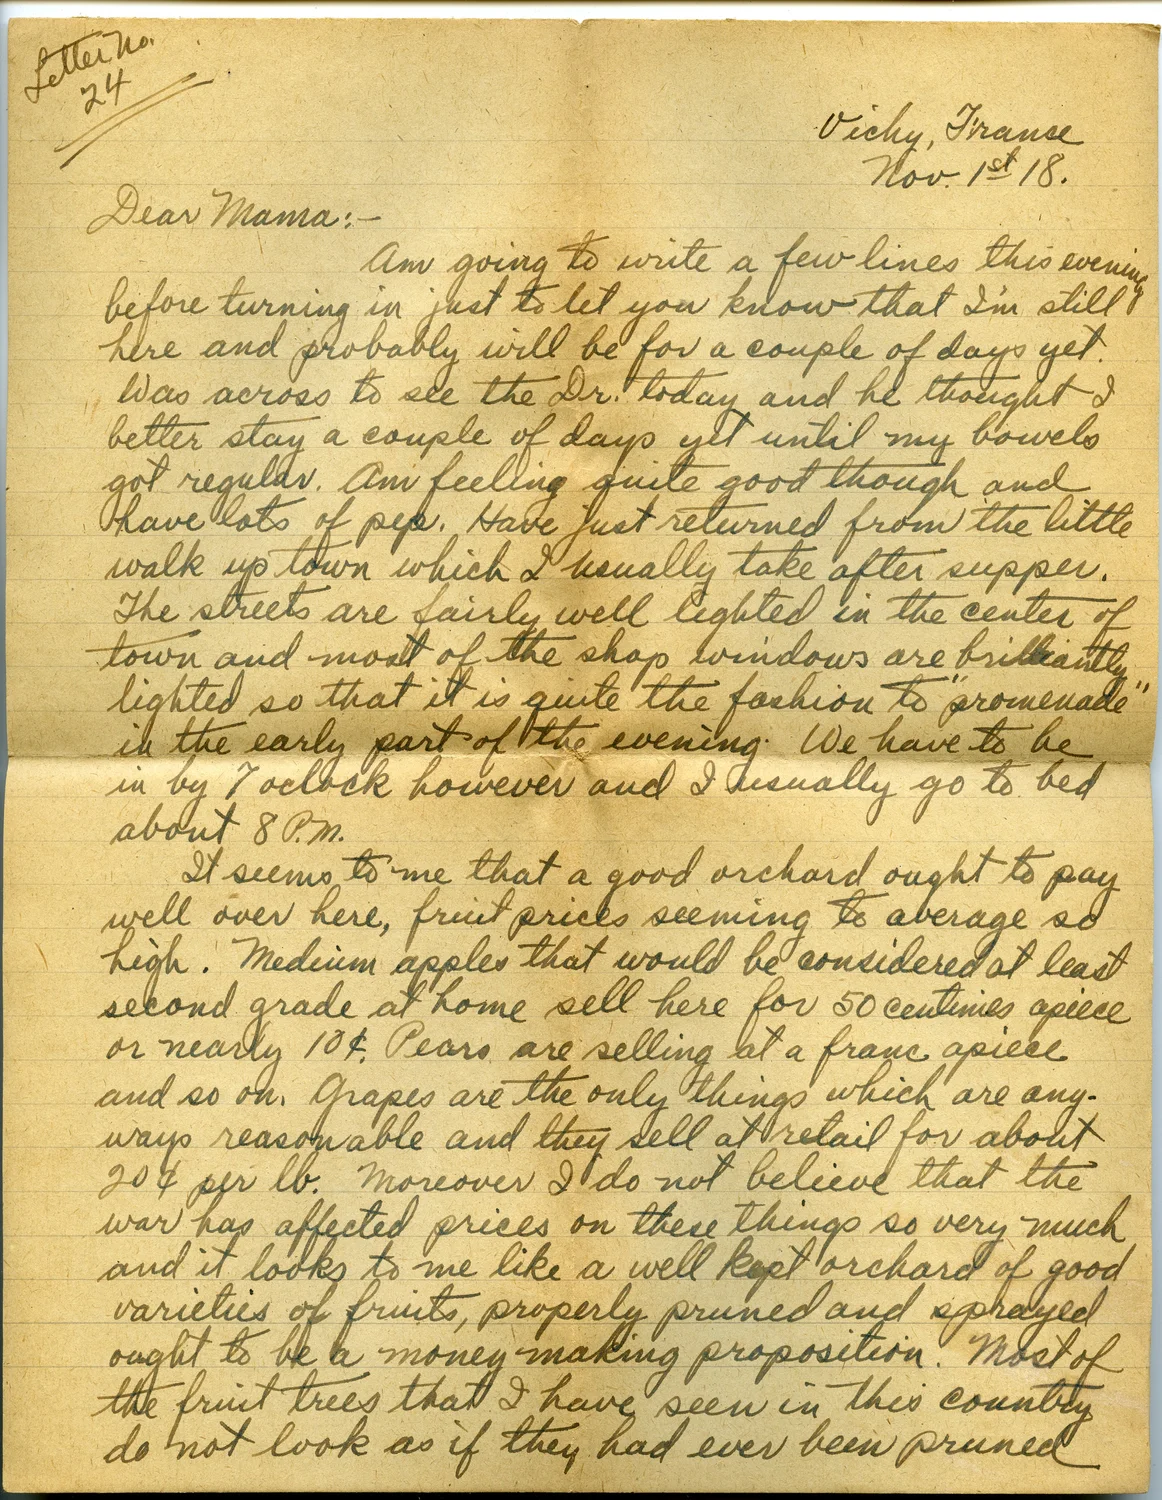 Letter No.
24
Vichy, France
Nov. 1st 18.
Dear Mama:-
Am going to write a few lines this evening
before turning in just to let you know that I'm still
here and probably will be for a couple of days yet.
Was across to see the Dr. today and he thought I
better stay a couple of days yet until my bowels
got regular. Am feeling quite good though and
have lots of pep. Have just returned from the little
walk up town which I usually take after supper.
The streets are fairly well lighted in the center of
town and most of the shop windows are brilliantly
lighted so that it is quite the fashion to "promenade"
in the early part of the evening. We have to be
in by 7 oclock however and I usually go to bed
about 8 P.M.
It seems to me that a good orchard ought to pay
well over here, fruit prices seeming to average so
high. Medium apples that would be considered at least
second grade at home sell here for 50 centimes apiece
or nearly 10¢. Pears are selling at a franc apiece
and so on. Grapes are the only things which are any-
ways reasonable and they sell at retail for about
20¢ per lb. Moreover I do not believe that the
war has affected prices on these things so very much
and it looks to me like a well kept orchard of good
varieties of fruits, properly pruned and sprayed
ought to be a money making proposition. Most of
the fruit trees that I have seen in this country
do not look as if they had ever been pruned